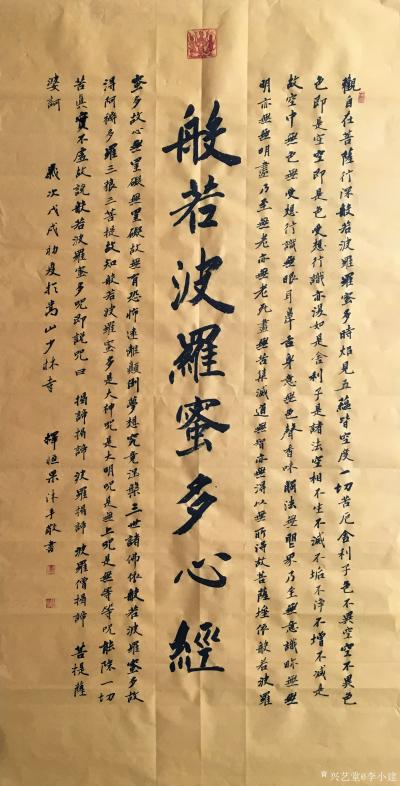 觀自在菩薩行深般若波羅蜜多時照見五蘊皆空度一切苦厄舍利子色不異空空不異色
色即是空空即是色受想行識亦復如是舍利子是諸法空相不生不滅不垢不淨不增不減是
故空中無色無受想行識無眼耳鼻舌身意無色聲香味觸法無眼界乃至無意識界無無
明亦無無明盡乃至無老亦無老死盡無苦集滅道無智亦無得以無所得故菩薩埵依般若波羅
般若波羅蜜多心經
蜜多故心無罣礙無罣礙故無有恐怖遠離顛倒夢想究竟涅槃三世諸佛依般若波羅蜜多故
得阿耨多羅三藐三菩提故知般若波羅蜜多是大神呪是大明呪是無上呪是無等等呪能除一切
苦真實不虛故說般若波羅蜜多呪即說呪曰 揭諦揭諦 波羅揭諦 波羅僧揭諦 菩提薩
婆訶 歲次戊戌初夏於嵩山少林寺 釋恒果沐手敬書
兴艺堂@李小建